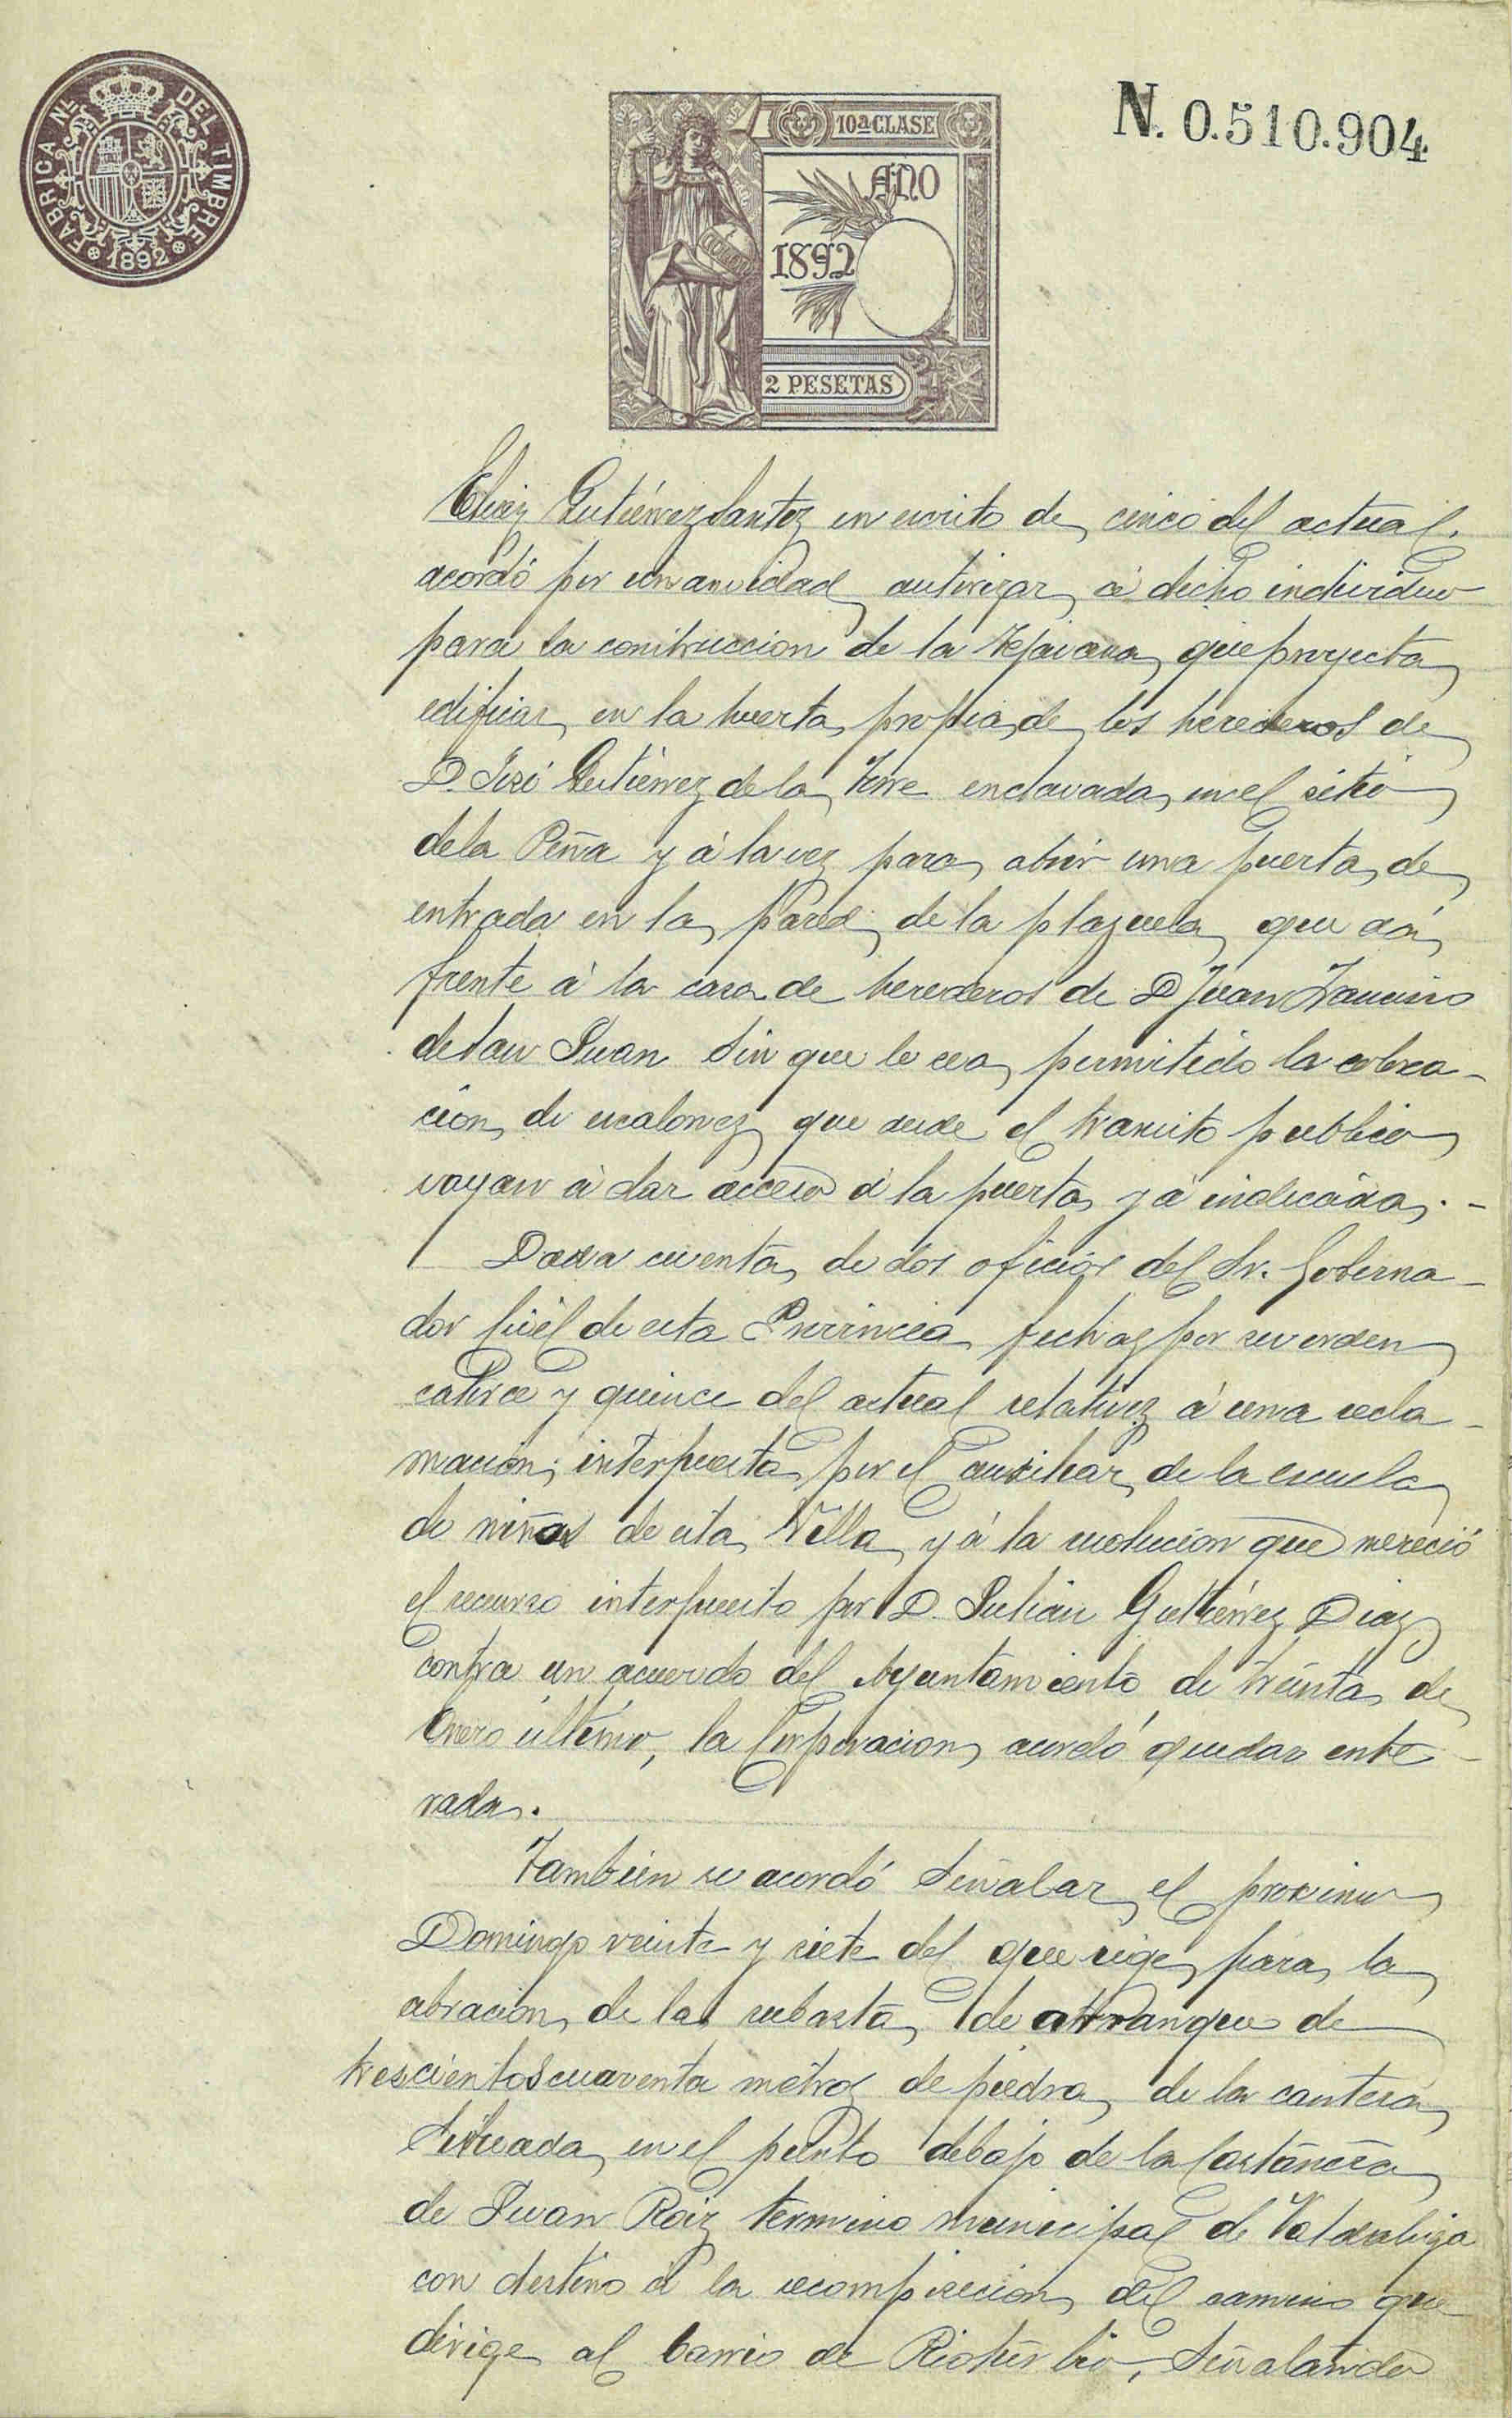 FABRICA NL. DEL TIMBRE
1892
10ª CLASE
AÑO
1892
2 PESETAS
N. 0.510.904
Gutiérrez Santos en escrito de cinco del actual.
acordó por unanimidad autorizar á dicho individuo
para la construccion de la tejavana que proyecta
edificar en la huerta propia de los herederos de
D. José Gutiérrez de la Torre enclavada en el sitio
de la Peña y á la vez para abrir una puerta de
entrada en la pared de la plazuela que dá
frente á la casa de herederos de D Juan Francisco
de San Juan sin que le sea permitido la coloca-
cion de escalones que desde el transito publico
vayan á dar acceso á la puerta yá indicada. -
Dada cuenta de dos oficios del Sr. Goberna-
dor civil de esta Provincia fechas por su orden
catorce y quince del actual relativos á una recla-
macion interpuesta por el auxiliar de la escuela
de niños de esta Villa y á la resolucion que mereció
el recurso interpuesto por D. Julián Gutiérrez Diaz
contra un acuerdo del Ayuntamiento de treinta de
Enero último, la Corporacion acordó quedar ente-
rada.
Tambien se acordó señalar el proximo
Domingo veinte y siete del que rige para la
de la subasta de arranque de
trescientos cuarenta metros de piedra de la cantera
situada en el punto debajo de la Castañera
de Juan Roiz termino municipal de Valdaliga
con destino á la recomposicion del camino que
dirige al barrio de Rioturbio, señalando